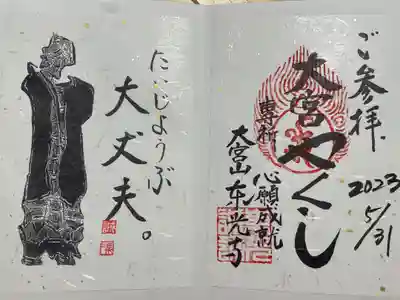 ご参拝
2023
5/31
大宮やくし
専祈
心願成就
大宮山東光寺
たいじょうぶ
大丈夫。